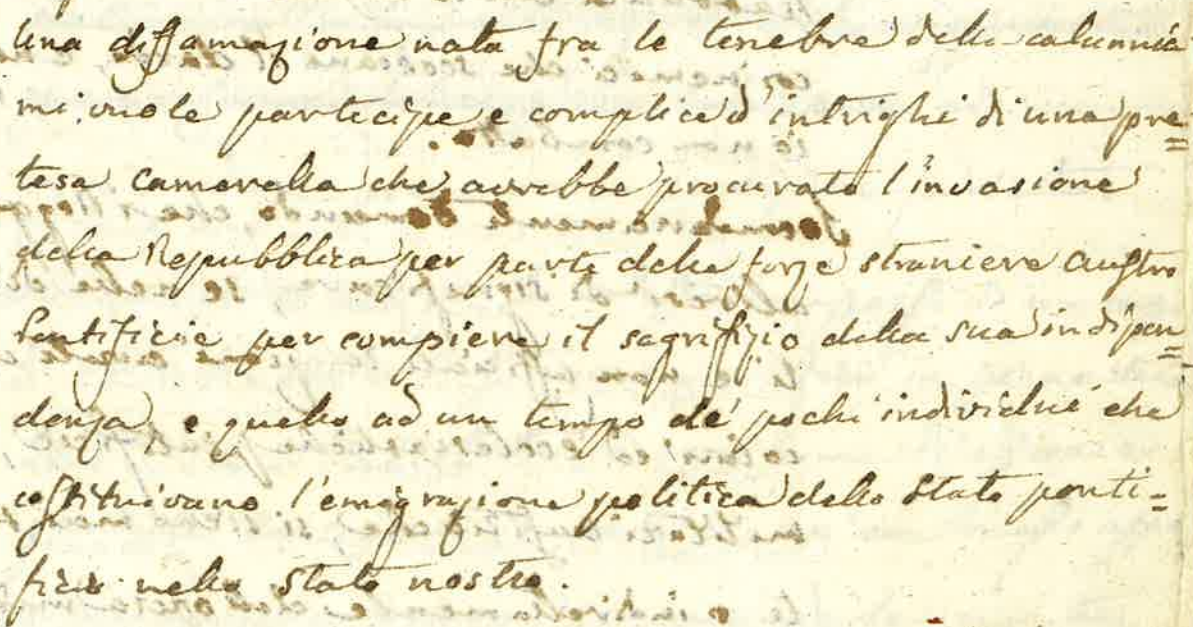 Una diffamazione nata fra le tenebre della calunnia
mi vuole partecipe e complice d'intrighi di una pre=
tesa camarella che avrebbe procurato l'invasione
della Repubblica per parte delle forze straniere austro
Pontificie per compiere il sagrifizio della sua indipen=
denza, e quello ad un tempo de' pochi individui che
costituivano l'emigrazione politica dello Stato ponti=
ficio nello Stato nostro.